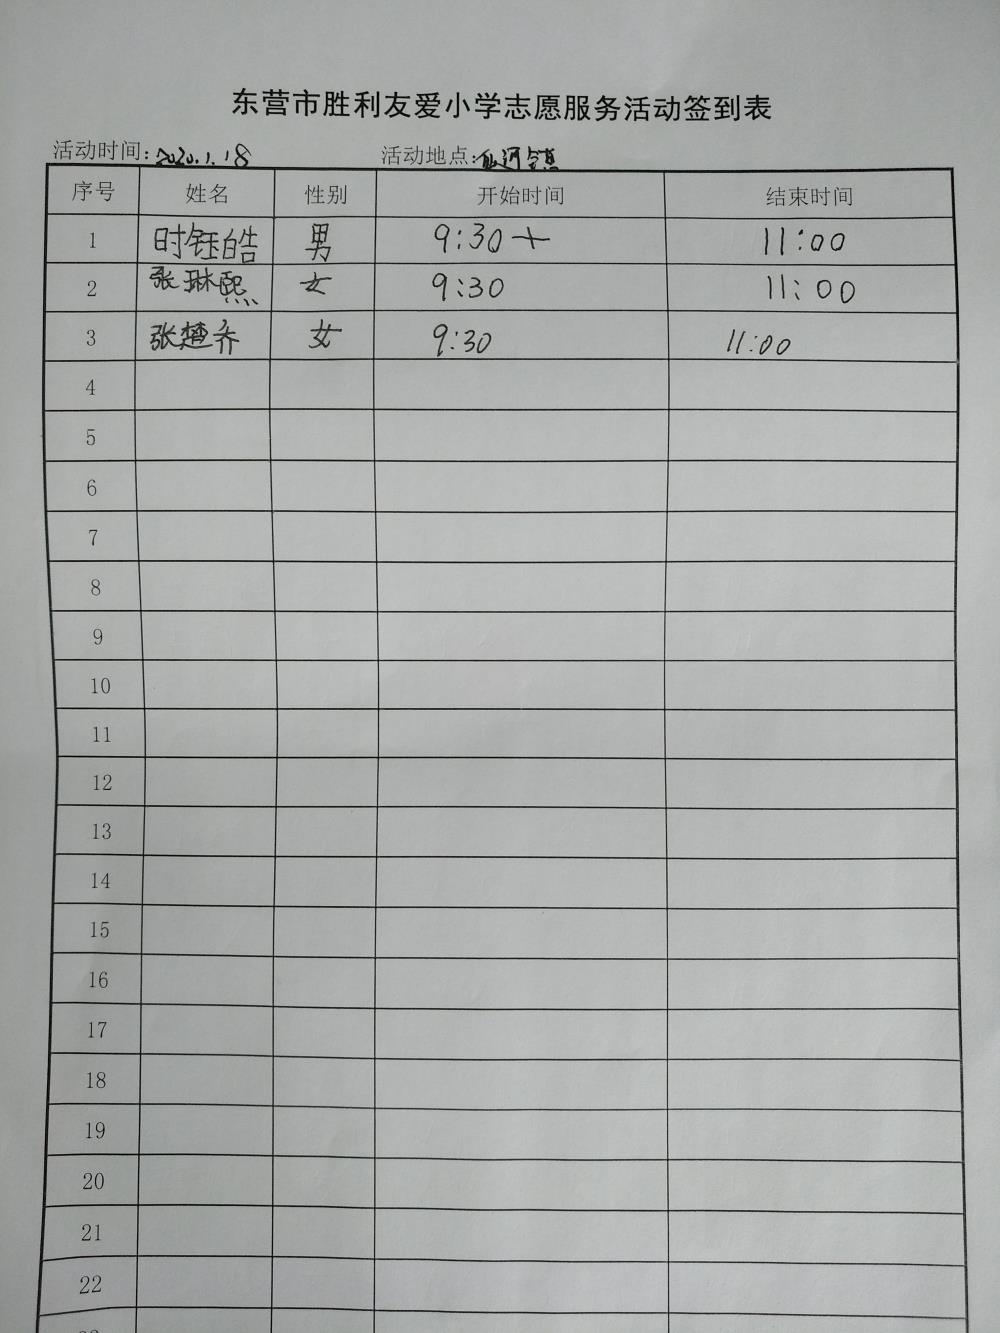 东营市胜利友爱小学志愿服务活动签到表
活动时间:2020.1.18 活动地点:仙河镇
序号 姓名 性别 开始时间 结束时间
1 时钰皓 男 9:30+ 11:00
2 张琳熙 女 9:30 11:00
3 张楚乔 女 9:30 11:00
4
5
6
7
8
9
10
11
12
13
14
15
16
17
18
19
20
21
22